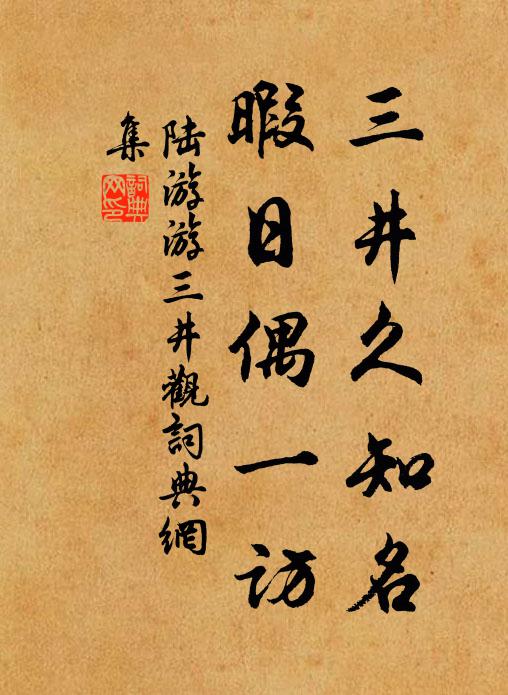 三井久知名
暇日偶一訪
陆游游三井觀詞典網
集
詞典
网印